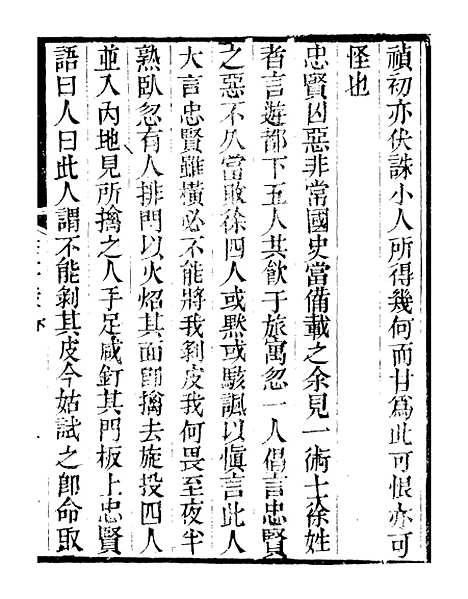 禎初亦伏誅小人所得幾何而甘為此可恨亦可
怪也
忠賢凶惡非常國史當備載之余見一術士徐姓
者言遊都下五人共飲于旅寓忽一人倡言忠賢
之惡不久當敗徐四人或黙或駭諷以慎言此人
大言忠賢雖橫必不能將我剝皮我何畏至夜半
熟臥忽有人排門以火焰其面卽擒去旋投四人
並入內地見所擒之人手足咸釘其門板上忠賢
語曰人曰此人謂不能剝其皮今姑試之卽命取